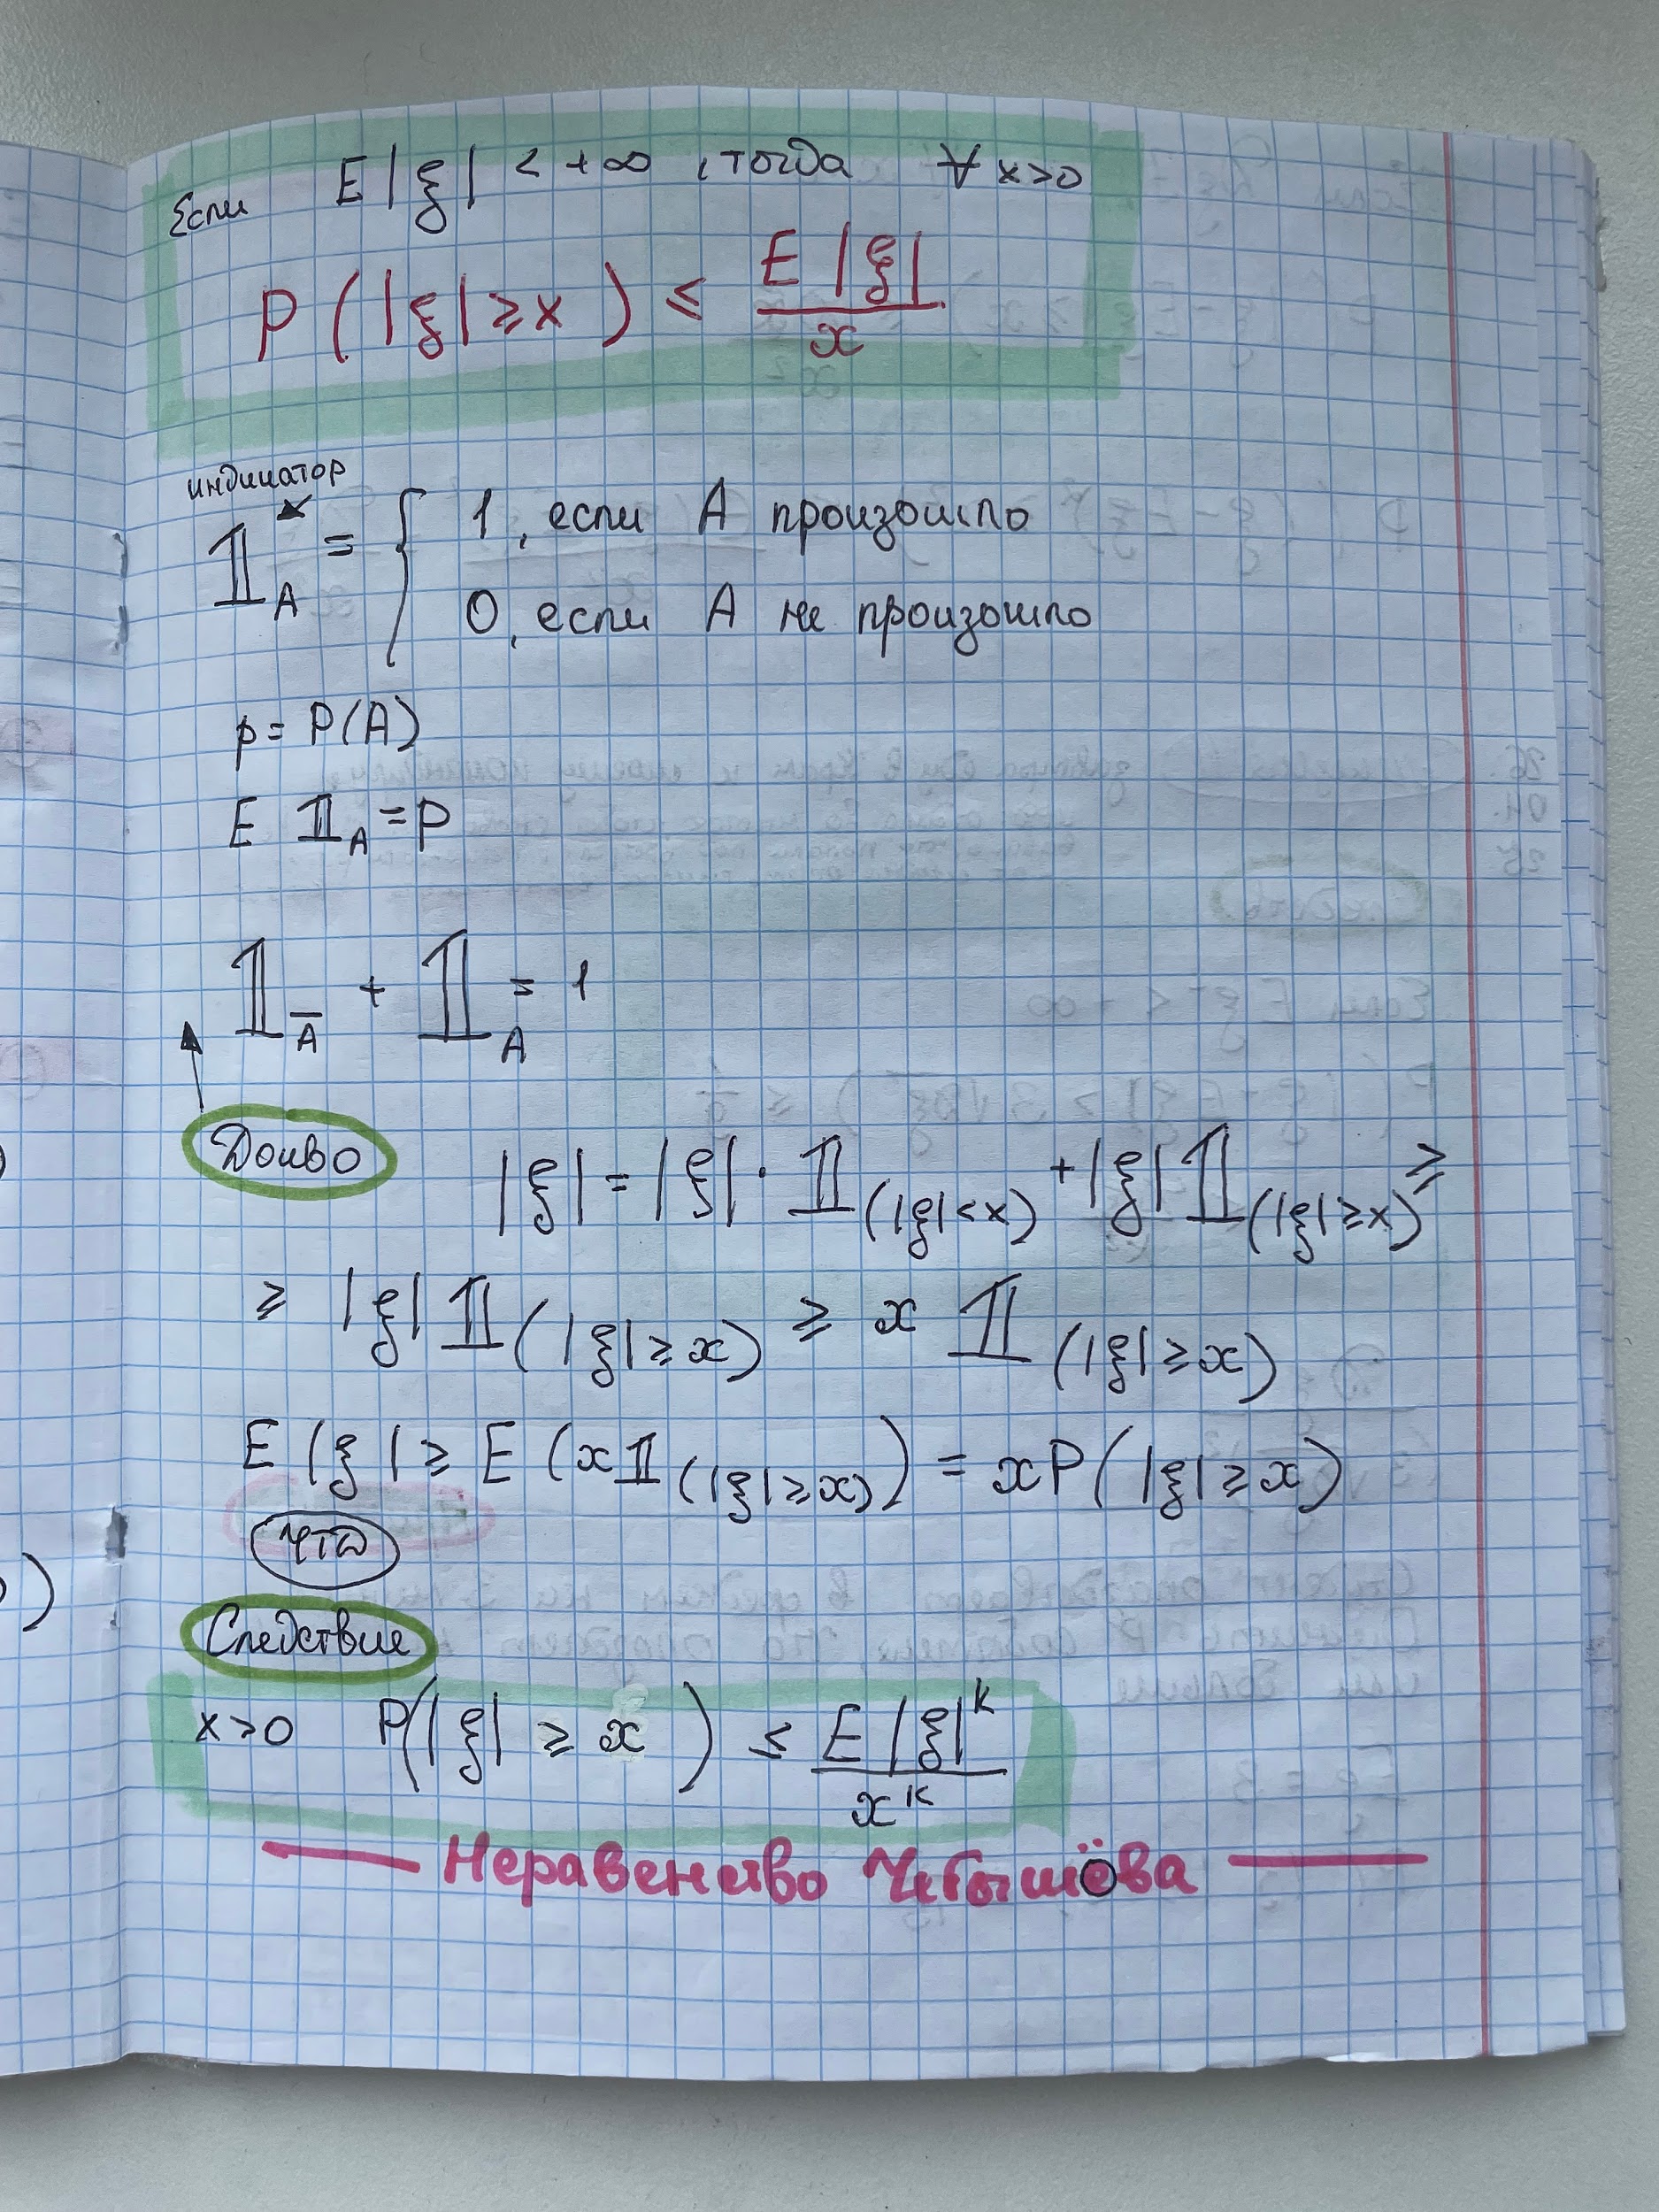 Если E|ξ| < +∞, тогда ∀ x>0
P(|ξ|≥x) ≤ E|ξ| / x
индикатор
𝟙_A = { 1, если A произошло
0, если A не произошло
p = P(A)
E 𝟙_A = p
𝟙_Ā + 𝟙_A = 1
Док-во |ξ| = |ξ| · 𝟙_(|ξ|<x) + |ξ| 𝟙_(|ξ|≥x) ≥
≥ |ξ| 𝟙_(|ξ|≥x) ≥ x 𝟙_(|ξ|≥x)
E|ξ| ≥ E (x𝟙_(|ξ|≥x)) = xP(|ξ|≥x)
ЧТД
Следствие
x>0 P(|ξ| ≥ x) ≤ E|ξ|^k / x^k
— Неравенство Чебышёва —